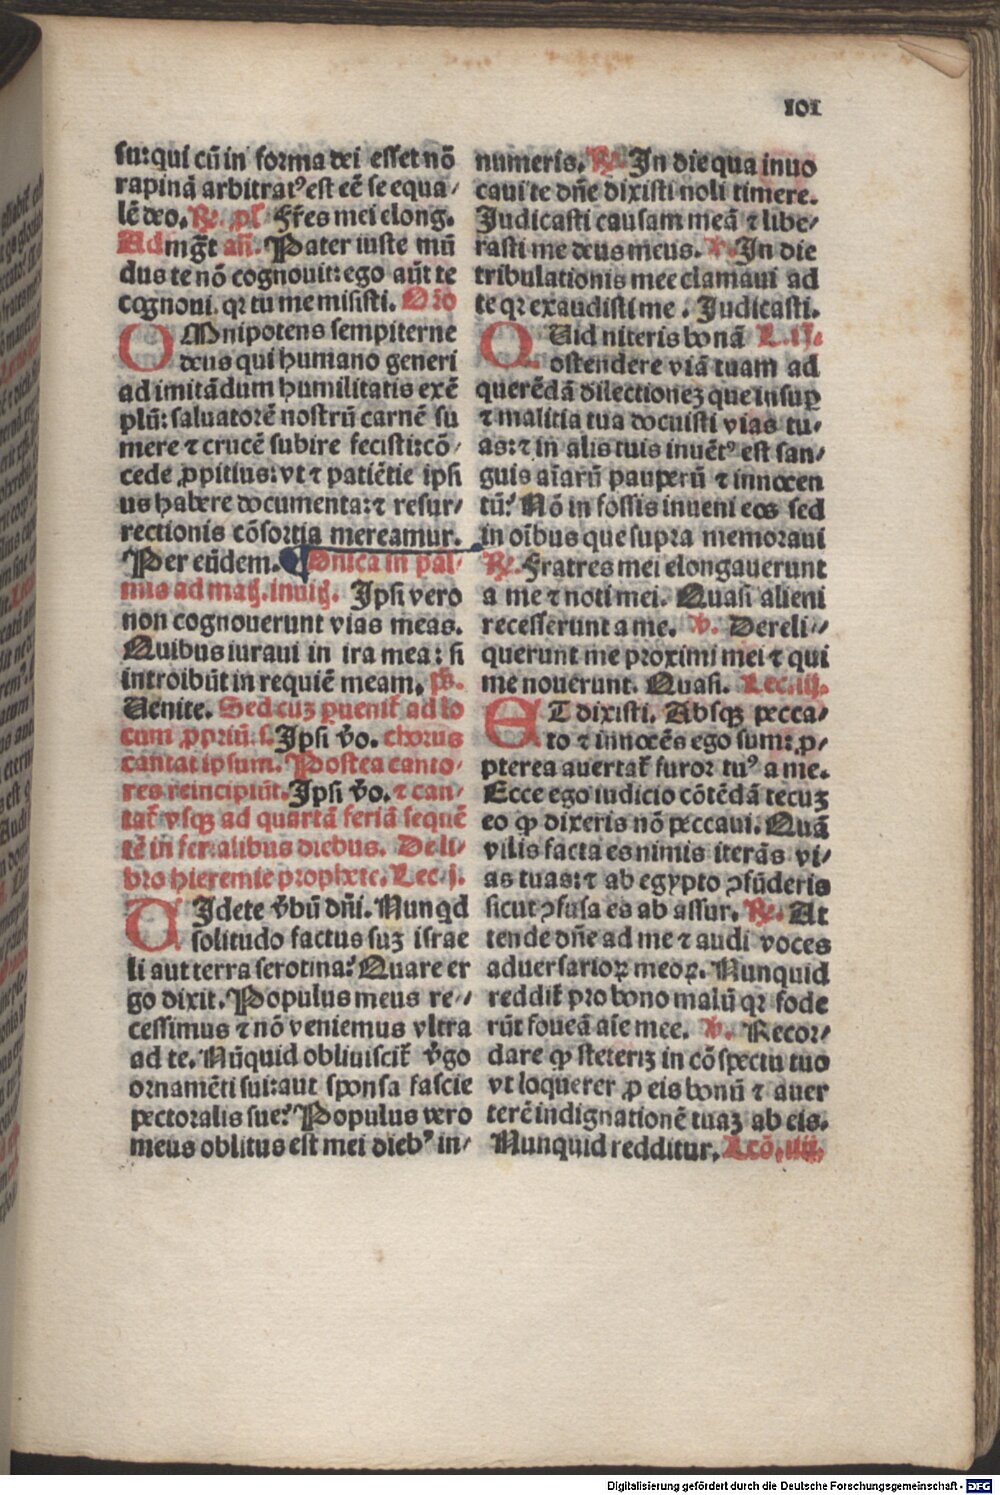 101
su: qui cū in forma dei esset nō
rapinā arbitratꝰ est eē se equa⸗
lē deo. ℟. ps̄. Fr̄es mei elong.
Ad mg̅t an̄. Pater iuste mū
dus te nō cognouit: ego aūt te
cognoui. qꝛ tu me misisti. Oro
OMnipotens sempiterne
deus qui humano generi
ad imitādum humilitatis exē
plū: saluatorē nostrū carnē su
mere ⁊ crucē subire fecisti: cō⸗
cede ꝓpitius: vt ⁊ patiētie ipsi
us habere documenta: ⁊ resur⸗
rectionis cōsortia mereamur.
Per eūdem. ¶ Dnica in pal⸗
mis ad mat̄. inuit̄. Ipsi vero
non cognouerunt vias meas.
Quibus iuraui in ira mea: si
introibūt in requiē meam. ps̄.
Uenite. Sed cuꝫ ꝑuenit̄ ad lo
cum ꝓpriū. s. Ipsi v̄o. chorus
cantat ipsum. Postea canto⸗
res reincipiūt. Ipsi v̄o. ⁊ can⸗
tat̄ vsqꝫ ad quartā feriā sequē
tē in ferialibus diebus. De li⸗
bro hieremie prophete. Lec. j.
UIdete v̄bū dn̄i. Nunqd
solitudo factus suꝫ israe
li aut terra serotina? Quare er
go dixit. Populus meus re⸗
cessimus ⁊ nō veniemus vltra
ad te. Nūquid obliuiscit̄ v̄go
ornamēti sui: aut sponsa fascie
pectoralis sue? Populus vero
meus oblitus est mei diebꝰ in⸗
numeris. ℟. In die qua inuo
caui te dn̄e dixisti noli timere.
Judicasti causam meā ⁊ libe⸗
rasti me deus meus. ℣. In die
tribulationis mee clamaui ad
te qꝛ exaudisti me. Judicasti.
QUid niteris bonā L. ij.
ostendere viā tuam ad
querēdā dilectionez que insuꝑ
⁊ malitia tua docuisti vias tu⸗
as: ⁊ in alis tuis inuētꝰ est san⸗
guis aīarū pauperū ⁊ innocen
tū? Nō in fossis inueni eos sed
in oībus que supra memoraui
℟. Fratres mei elongauerunt
a me ⁊ noti mei. Quasi alieni
recesserunt a me. ℣. Dereli⸗
querunt me proximi mei ⁊ qui
me nouerunt. Quasi. Lec. iij.
ET dixisti. Absqꝫ pecca⸗
to ⁊ innocēs ego sum: ꝓ⸗
pterea auertat̄ furor tuꝰ a me.
Ecce ego iudicio cōtēdā tecuꝫ
eo ꝙ dixeris nō peccaui. Quā
vilis facta es nimis iterās vi⸗
as tuas: ⁊ ab egypto ꝯfūderis
sicut ꝯfusa es ab assur. ℟. At
tende dn̄e ad me ⁊ audi voces
aduersarioꝝ meoꝝ. Nunquid
reddit̄ pro bono malū qꝛ fode
rūt foueā aīe mee. ℣. Recor⸗
dare ꝙ steteriꝫ in cōspectu tuo
vt loquerer ꝓ eis bonū ⁊ auer
terē indignationē tuaꝫ ab eis.
Nunquid redditur. Lcō. iiij.
Digitalisierung gefördert durch die Deutsche Forschungsgemeinschaft - DFG